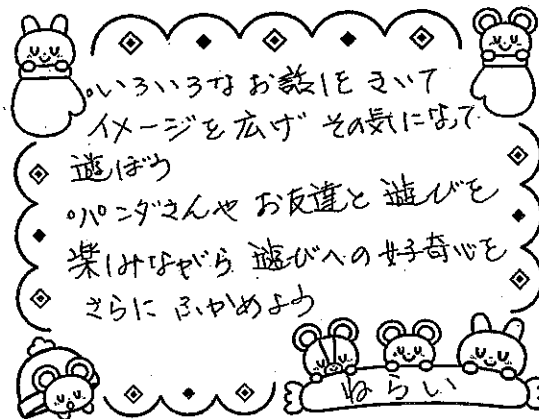 ○いろいろな お話をきいて
イメージを広げ その気になって
遊ぼう
○パンダさんや お友達と 遊びを
楽しみながら 遊びへの好奇心を
さらに ふかめよう
ねらい